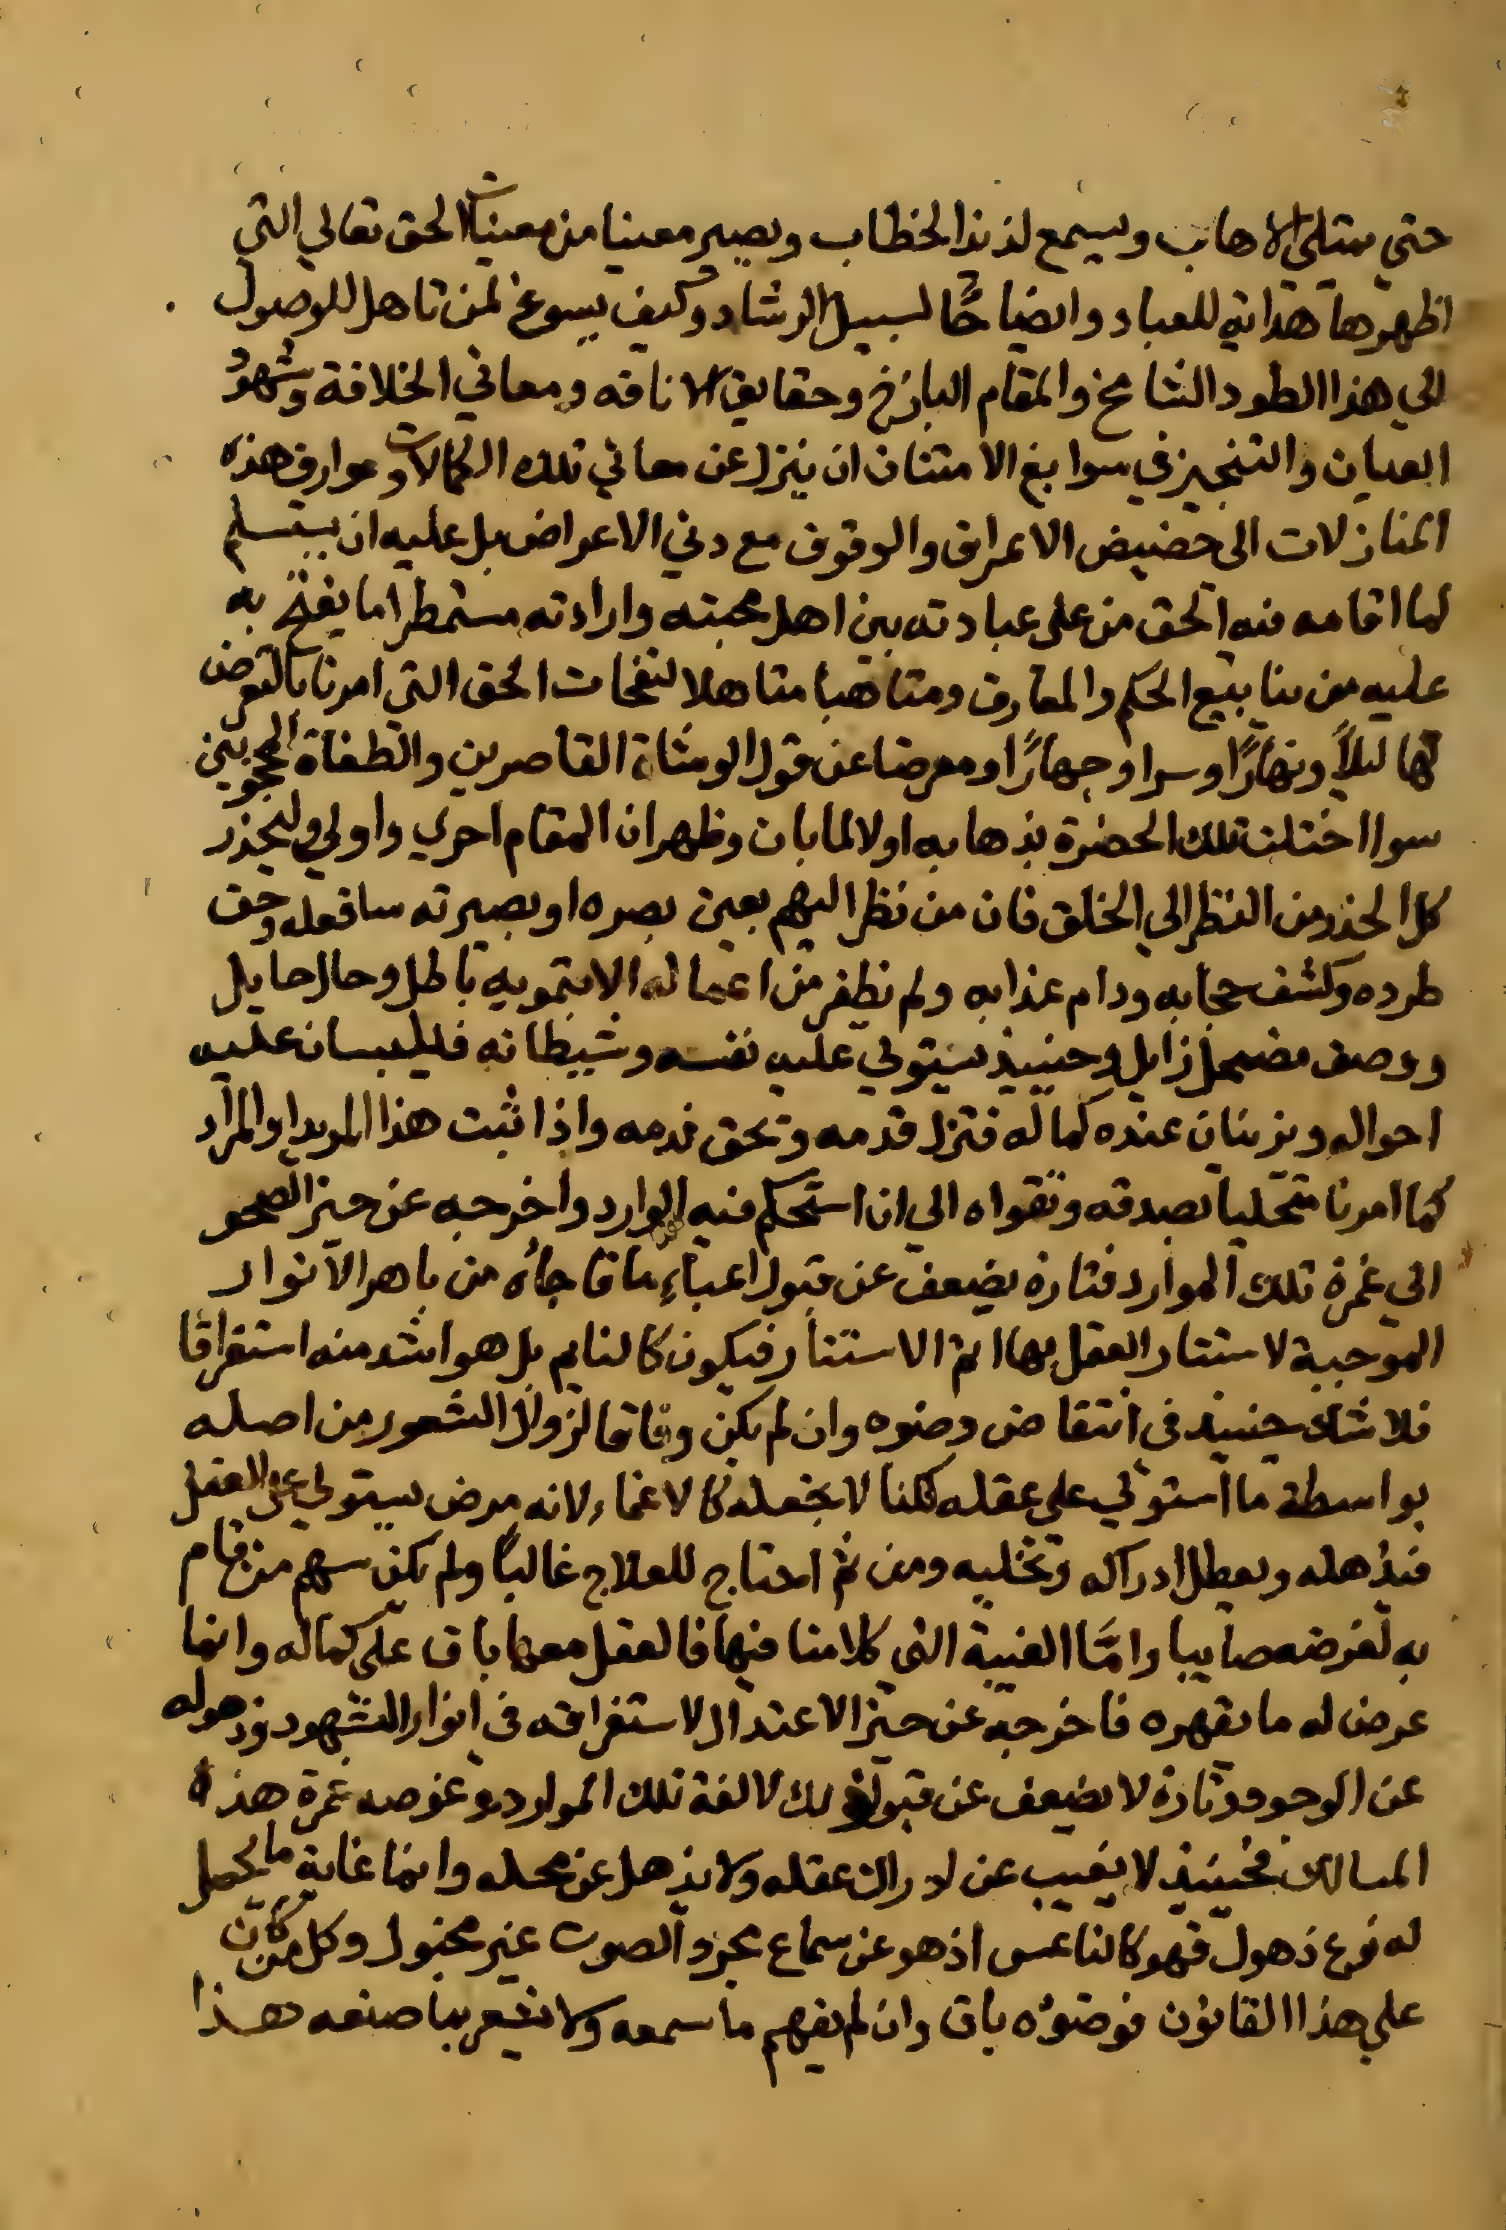 حتي يمتلئ الاهاب ويسمع لذيذ الخطاب ويصير معينا من معينات الحق تعالي التي
اظهرها هداية للعباد وايضاحًا لسبيل الرشاد وكيف يسوغ لمن تاهل للوصول
الي هذا الطود الشامخ والمقام الباذخ وحقايق الانافه ومعاني الخلافة وشهود
العيان والتنجيز في سوابغ الامتنان ان ينزل عن معاني تلك الكمالات وعوارف هذه
المنازلات الى حضيض الاعراض والوقوف مع دني الاعراض بل عليه ان يستسلم
لما اقامه فيه الحق من على عبادته بين اهل محبته وارادته مستمطرا ما يفتح به
عليه من ينابيع الحكم والمعارف ومتاهبا متاهلا لنفحات الحق التي امرنا بالتعرض
لها ليلاً ونهارًا وسرا وجهارًا ومعرضا عن قول الوشاة القاصرين والطغاة المحجوبين
سوا اختلت تلك الحضرة بذهابه اولا لما بان وظهر ان المقام احري واولي وليحذر
كل الحذر من النظر الي الخلق فان من نظر اليهم بعين بصره او بصيرته سا فعله وحق
طرده وكشف حجابه ودام عذابه ولم يظفر من اعماله الا بتمويه باطل وحال حايل
ووصف مضمحل زايل وحينيذ يستولي عليه نفسه وشيطانه فيلبسان عليه
احواله ويزينان عنده كماله فتزل قدمه ويحق ندمه واذا ثبت هذا المريد او المراد
كما امرنا متحليا بصدقه وتقواه الي ان استحكم فيه الوارد واخرجه عن حيز الصحو
الي غمرة تلك الموارد فتارة يضعف عن قبول اعباءِ ما فاجاه من باهر الانوار
الموجبة لاستتار العقل بها اتم الاستتار فيكون كالنايم بل هو اشد منه استغراقا
فلا شك حينيذ في انتقاض وضوه وان لم يكن وفاقا لزوال الشعور من اصله
بواسطة ما استولي علي عقله لكنا لا نجعله كالاغماء لانه مرض يستولي على العقل
فيذهله ويعطل ادراكه وتخليه ومن ثم احتاج للعلاج غالبًا ولم يكن سهم من قام
به لغرضه صايبا وامَّا الغيبة التي كلامنا فيها فالعقل معها باق على كماله وانما
عرض له ما يقهره فاخرجه عن حيز الاعتدال لاستغراقه في انوار الشهود وذهوله
عن الوجود وتارة لا يضعف عن قبول ذلك لالفة تلك الموارد وغوصه غمرة هذه
المسالك فحينيذ لا يغيب عن ادراك عقله ولا يذهل عن محله وانما غاية ما يحصل
له نوع ذهول فهو كالناعس اذ هو عن سماع مجرد الصوت غير مخبول وكل من كان
علي هذا القانون فوضوه باق وان لم يفهم ما سمعه ولا يشعر بما صنعه هذا